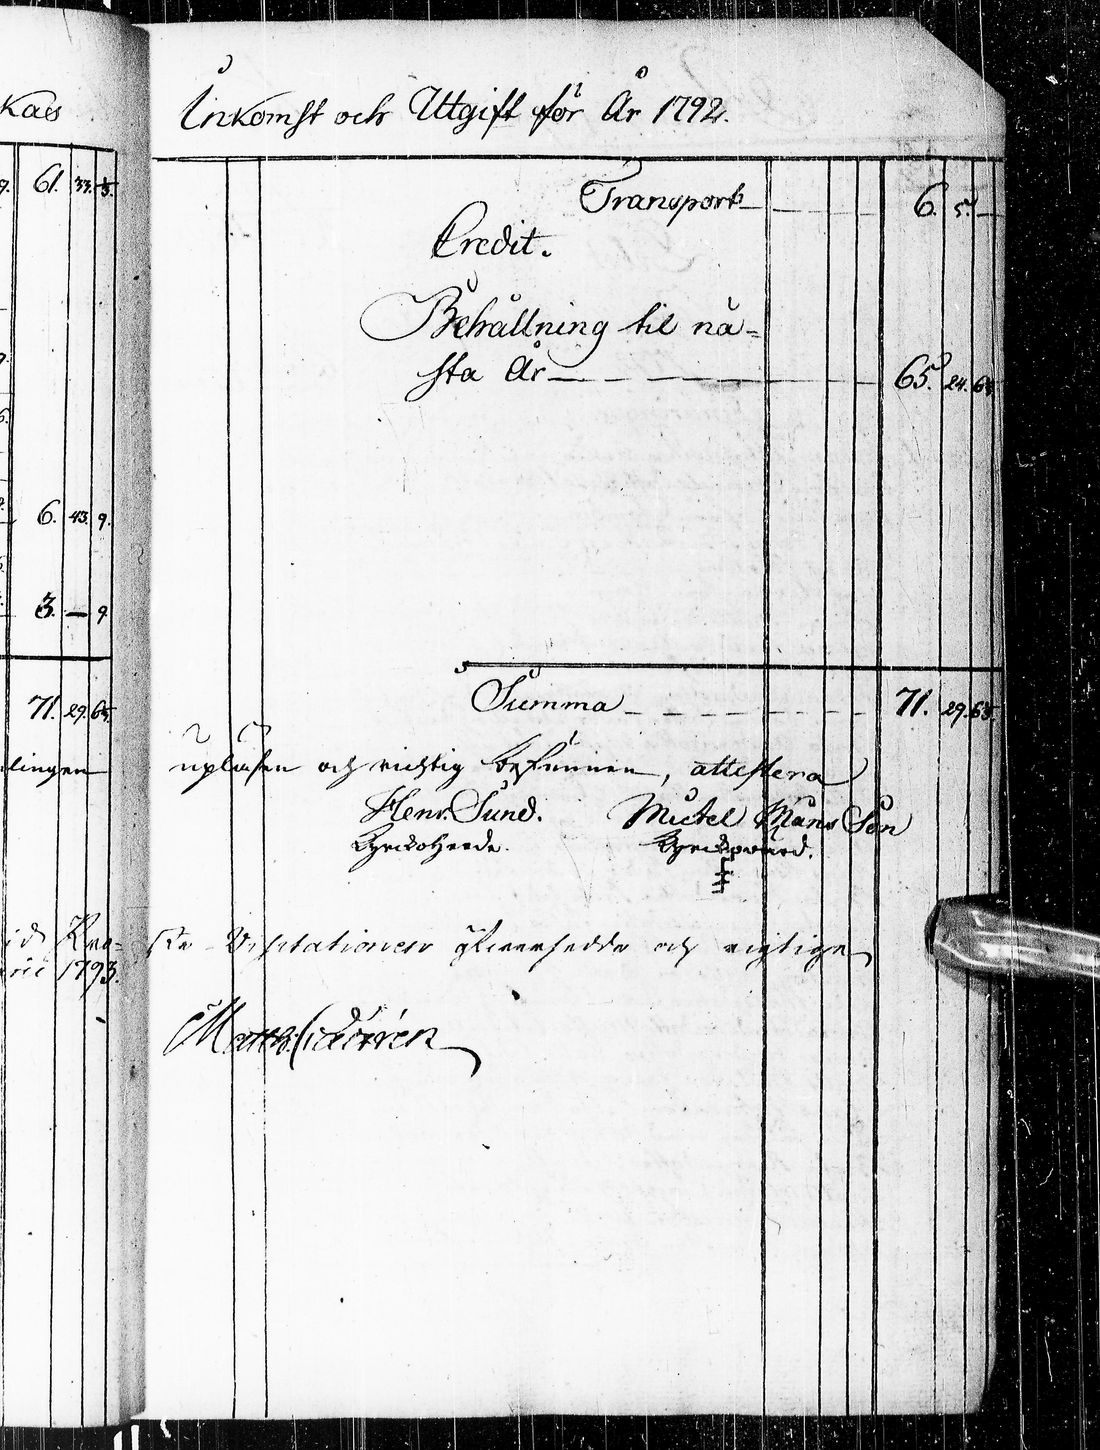 kas
61. 33.
6. 43. 9.
3. — 9.
71. 29.
lingen
1793.
Inkomst och Utgift för År 1792.
Transport 6. 5. —
Credit.
Behållning til nä-
sta År 65. 24.
Summa 71. 29.
upläsen och richtig befunnen, attestera
Henr. Sund. Mickel Måns Son
Kyrckoheerde. Kyrckovärd.
Visitationen öfversedde och rigtige